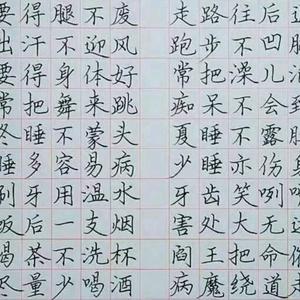 要得腿不废 走路往后退
出汗不迎风 跑步不凹胸
要得身体好 常把澡儿洗
常把舞来跳 痴呆不会到
冬睡不蒙头 夏睡不露肚
睡多容易病 少睡亦伤身
刷牙用温水 牙齿笑咧咧
饭后一支烟 害处大无边
喝茶不洗杯 阎王把命催
尽量少喝酒 病魔绕道走